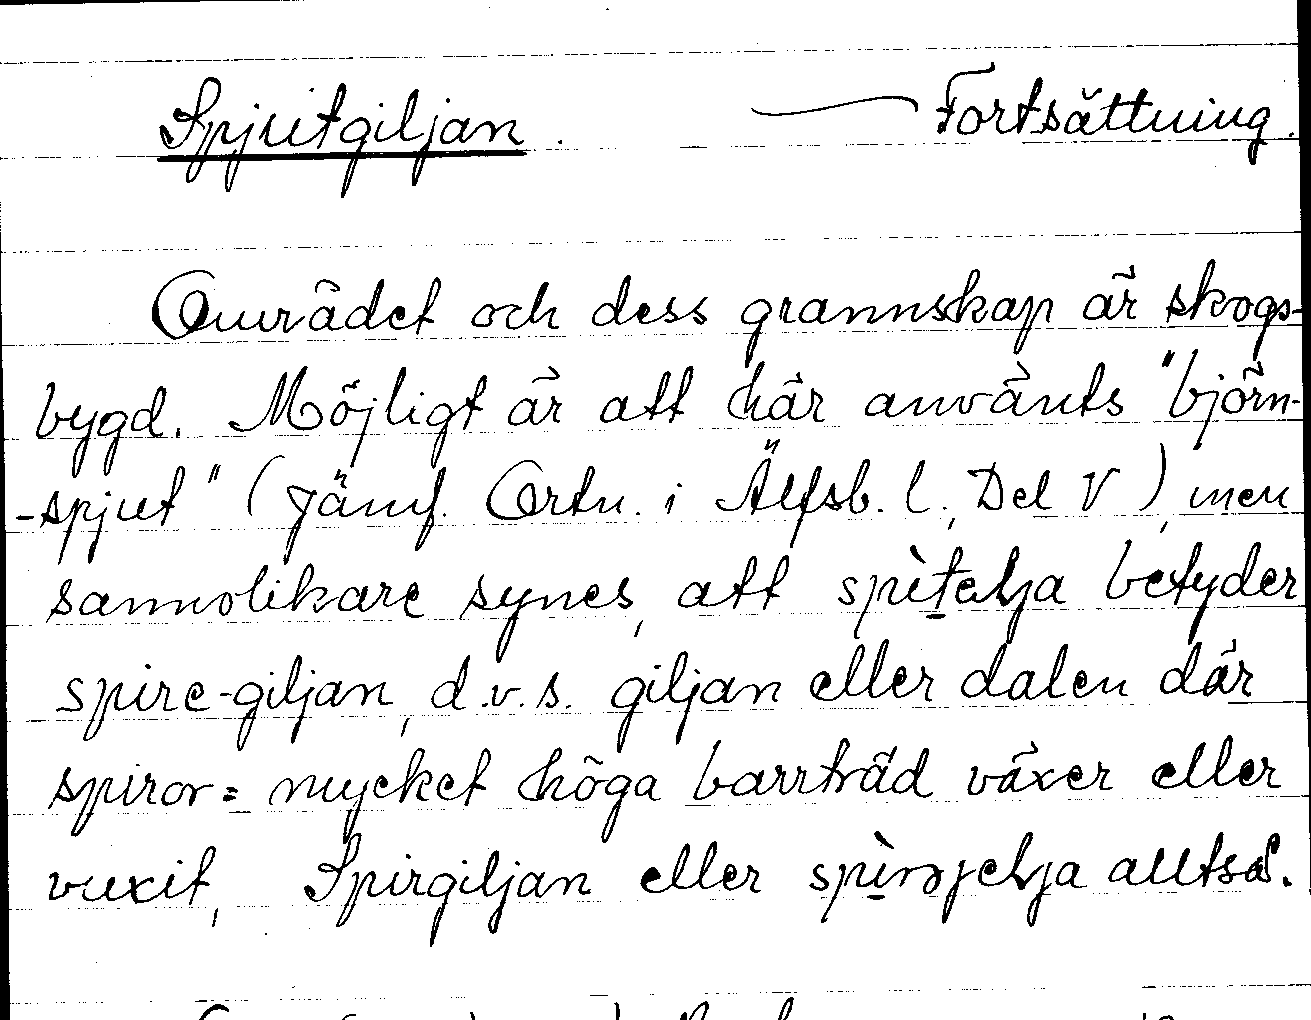 Spjutgiljan. — Fortsättning.
Området och dess grannskap är skogs-
bygd. Möjligt är att här använts "björn-
-spjut" (Jämf. Ortn. i Älfsb. l., Del V), men
sannolikare synes, att spìtelja betyder
spire-giljan, d.v.s. giljan eller dalen där
spiror = mycket höga barrträd växer eller
vuxit, Spirgiljan eller alltså.